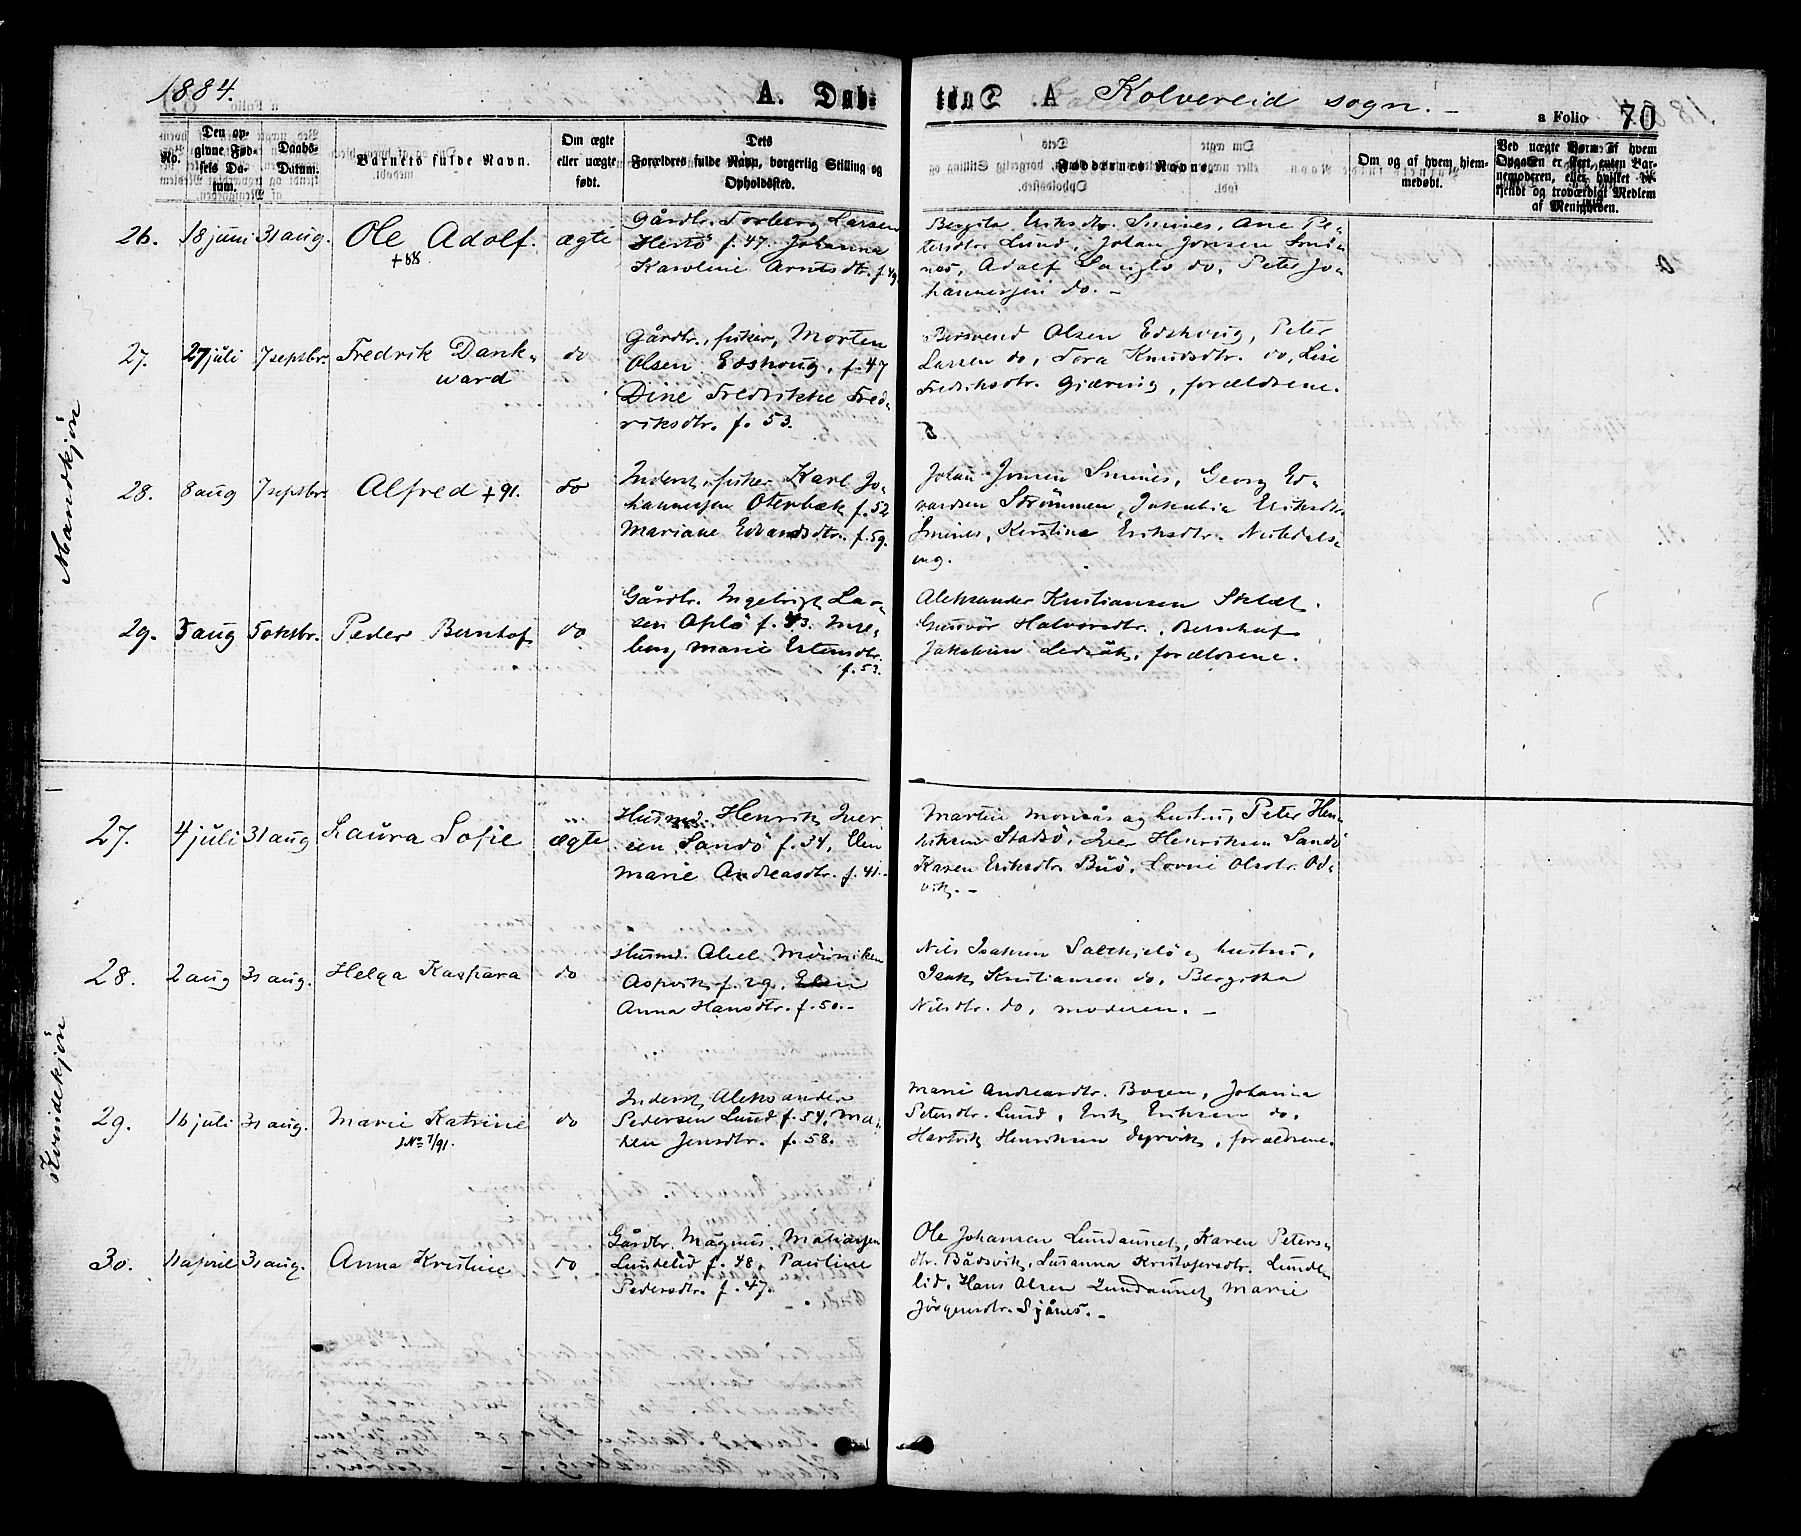 1884.
A. Dab-
A. Dabt
Kolvereid sogn. -
a Folio 70
No.
Den op-
givne Fød-
sels Da-
tum.
Daabs-
Datum.
Barnets fulde Navn.
Om ægte
eller uægte
født.
Dets
Forældres fulde Navn, borgerlig Stilling og
Opholdssted.
Faddernes Navne.
Om og af hvem hjem-
medøbt.
Ved uægte Børn: af hvem
Opgaven er skeet, enten Bar-
nemoderen, eller hvilket be-
kjendt og troværdigt Medlem
af Menigheden.
Mandkjøn
26. 18 juni 31 aug. Ole Adolf. ægte
+88
Gårdbr. Torberg Larsen
f. 47. Johanna
Karoline Arntsdtr. f. 49.
Bergita Eriksdtr. Smines, Ane Pe-
tersdtr. Lund, Johan Jonsen Smi-
nes, Adolf do, Peter Jo-
hannessen do. -
27. 27 juli 7 septbr. Fredrik Dank-
ward
do
Gårdbr., fisker, Morten
Olsen Edshoug, f. 47
Dine Fredrikke Fred-
riksdtr. f. 53.
Olsen Edshoug, Peter
Larsen do, Tora Knudsdtr. do, Lise
Fredriksdtr. Gjæring, forældrene.
28. 8 aug 7 septbr. Alfred +91. do
Inderst, fisker Karl Jo-
hannessen Oterbæk f. 52
Mariane Edvardsdtr. f. 59.
Johan Jonsen Smines, Georg Ed-
vardsen Strömmen, Jakobia Eriksdtr.
Smines, Kerstine Eriksdtr.
29. 5 aug 5 oktbr. Peder Bernhof do
Gårdbr. Ingebrigt Lar-
sen Oplö f. 43. Inge-
borg Marie Estensdtr.
f. 53.
Aleksander Kristiansen
Gunvör Halvorsdtr.
forældrene.
Kvindekjøn
27. 4 juli 31 aug Laura Sofie ægte
Husmd. Henrik Iver-
sen Sandö f. 34, Elen
Marie Andreasdtr. f. 41.-
Martin og hustru, Peter Hen-
riksen Iver Henriksen Sandö
Karen Eriksdtr. Buö, Olsdtr. Od-
vik. -
28. 2 aug 31 aug. Helga Kaspara do
Husmd. Abel
Aspvik f. 29.
Anna Hansdtr. f. 50. -
Nils Isaksen og hustru,
Isak Kristiansen do, Bergitha
Nilsdtr. do, moderen. -
29. 16 juli 31 aug. Marie Katrine do
J.No 7/91.
Inderst, Aleksander
Pedersen Lund f. 54, Ma-
ren Jensdtr. f. 58.
Marie Andreasdtr. Bogen, Johanna
Petersdtr. Lund, Erik Eriksen do,
Hartvik Henriksen Dyrvik, forældrene.
30. 11 april 31 aug. Anna Kristine do
Gårdbr. Magnus Matiassen
Lundelid f. 48, Pauline
Pedersdtr. f. 47.
Ole Johansen Lundaunet, Karen Peters-
dtr. Bådsvik, Susanna Kristofersdtr. Lunde-
lid, Hans Olsen Lundaunet, Marie
Jörgensdtr. Sjånes. -